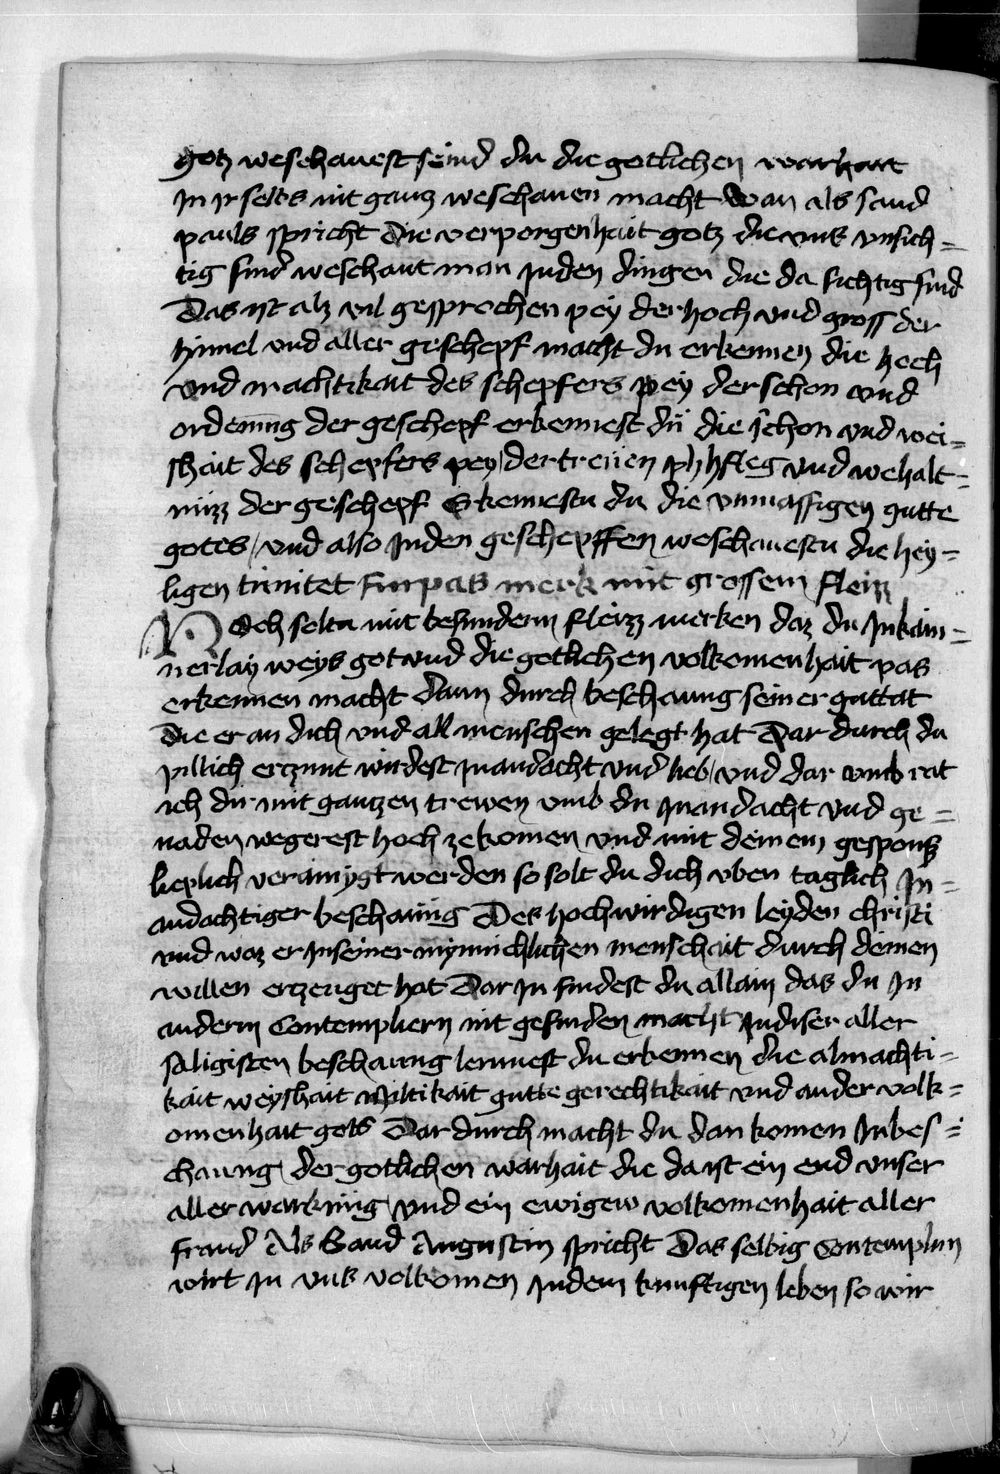 gotz weschauest seind du die gotlichen warhait
In Ir selbs nit gantz weschauen macht Wan als sand
pauls spricht Die verporgenhait gotz die vns vnsich=
tig sind weschaut man Inden dingen die da sichtig sind
Das ist alz vil gesprochen pey der hoch vnd gross der
himel vnd aller geschepf macht du erkennen die hoch
vnd machtikait des schepfers pey der schon vnd
ordenung der geschepf erkennest du die schon vnd wei=
shait des schepfers pey der treuen phfleg vnd wehalt=
nüzz der geschepf Erkennestu du die vnmassigen gutte
gotes / vnd also Inden geschepffen weschauestu die hey=
ligen trinitet Furpas merk mit grossem fleizz
Noch soltu mit besunderm fleizz merken daz du In kain=
nerlay weys got vnd die gotlichen volkomenhait pas
erkennen macht dann durch beschaung seiner guttat
Die er an dich vnd all menschen gelegt hat Dar durch du
pillich erczunt wirdest In andacht vnd lieb / vnd dar vmb rat
ich dir mit gantzen trewen vmb du In andacht vnd ge=
naden wegerest hoch ze komen vnd mit deinem gesponss
lieplich verainygt werden so solt du dich vben taglich In=
andachtiger beschaung Des hochwirdigen leyden christi
vnd waz er In seiner mynnichlichen menschait durch deinen
willen erczeuget hat Dar In findest du allain das du In
anderm Contempliern nit gefinden macht In diser aller
saligisten beschaung lernnest du erkennen die almachti=
kait weyshait Miltikait gutte gerechtikait vnd ander volk=
omenhait gots Dar durch macht du dan komen In bes=
chaung der gotlichen warhait die da ist ein end vnser
aller warknüg vnd ein ewigew volkomenhait aller
fraud Als Sand Augustin spricht Das selbig Contempliern
wirt In vns volkomen In dem kunftigen leben so wir